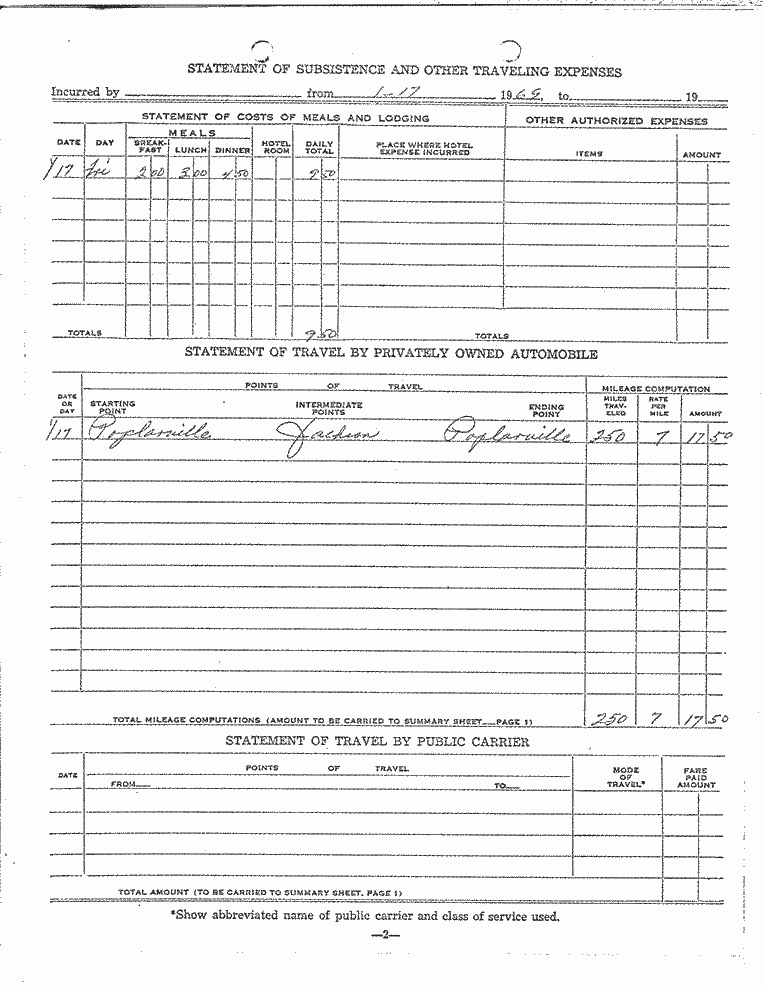 STATEMENT OF SUBSISTENCE AND OTHER TRAVELING EXPENSES
Incurred by from 1-17 1969, to 19
STATEMENT OF COSTS OF MEALS AND LODGING OTHER AUTHORIZED EXPENSES
DATE DAY MEALS BREAK-FAST LUNCH DINNER HOTEL ROOM DAILY TOTAL PLACE WHERE HOTEL EXPENSE INCURRED ITEMS AMOUNT
1/17 Fri 2 00 3 00 4 50 9 50
TOTALS 9 50 TOTALS
STATEMENT OF TRAVEL BY PRIVATELY OWNED AUTOMOBILE
POINTS OF TRAVEL MILEAGE COMPUTATION
DATE OR DAY STARTING POINT INTERMEDIATE POINTS ENDING POINT MILES TRAV-ELED RATE PER MILE AMOUNT
1/17 Poplarville Jackson Poplarville 250 7 17 50
TOTAL MILEAGE COMPUTATIONS (AMOUNT TO BE CARRIED TO SUMMARY SHEET—PAGE 1) 250 7 17 50
STATEMENT OF TRAVEL BY PUBLIC CARRIER
DATE POINTS OF TRAVEL MODE OF TRAVEL* FARE PAID AMOUNT
FROM— TO—
TOTAL AMOUNT (TO BE CARRIED TO SUMMARY SHEET, PAGE 1)
*Show abbreviated name of public carrier and class of service used.
—2—